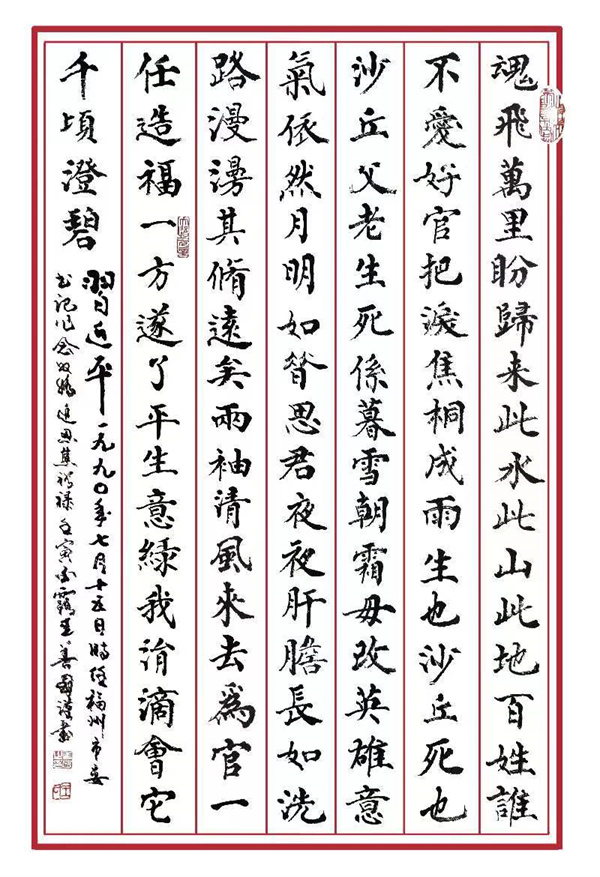 魂飛萬里盼歸来此水此山此地百姓誰
不愛好官把淚焦桐成雨生也沙丘死也
沙丘父老生死係暮雪朝霜毋改英雄意
氣依然月明如昔思君夜夜肝膽長如洗
路漫漫其脩遠矣兩袖清風來去爲官一
任造福一方遂了平生意綠我涓滴會它
千頃澄碧
習近平一九九〇年七月十五日時任福州市委
書記作念奴嬌追思焦裕禄壬寅白露王善國謹書